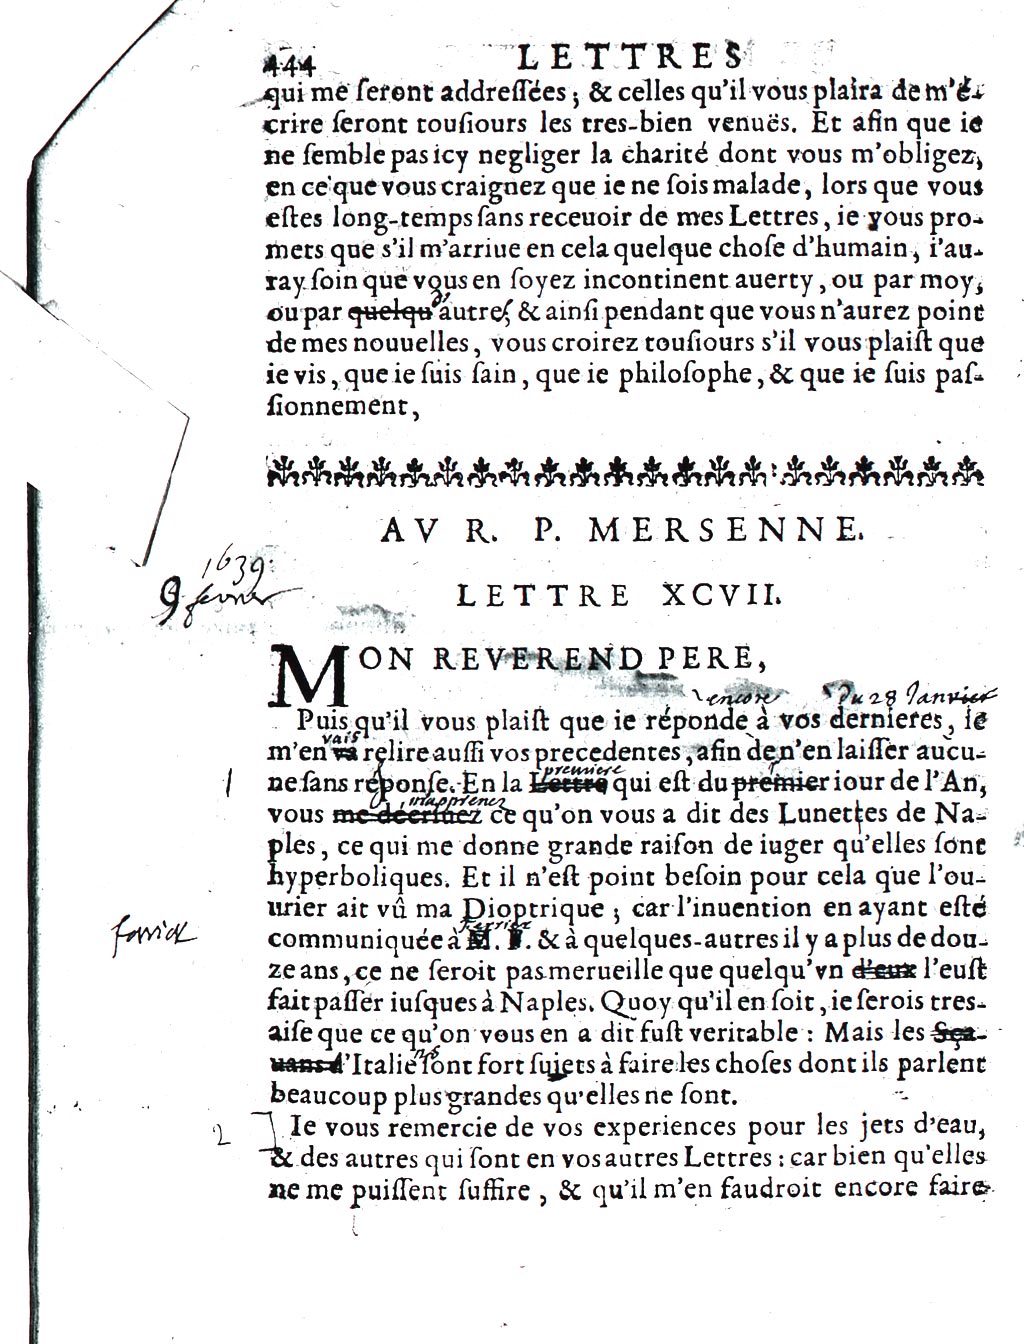 444 LETTRES
qui me ſeront addreſſées ; & celles qu'il vous plaira de m'é-
crire ſeront touſiours les tres-bien venuës. Et afin que ie
ne ſemble pas icy negliger la charité dont vous m'obligez,
en ce que vous craignez que ie ne ſois malade, lors que vous
eſtes long-temps ſans receuoir de mes Lettres, ie vous pro-
mets que s'il m'arriue en cela quelque choſe d'humain, i'au-
ray ſoin que vous en ſoyez incontinent auerty, ou par moy,
d'
ou par quelqu'autre, & ainſi pendant que vous n'aurez point
de mes nouuelles, vous croirez touſiours s'il vous plaiſt que
ie vis, que ie ſuis ſain, que ie philoſophe, & que ie ſuis paſ-
ſionnement,
AV R. P. MERSENNE.
1639.
9 fevrier
LETTRE XCVII.
MON REVEREND PERE,
encore du 28 Janvier
Puis qu'il vous plaiſt que ie réponde à vos dernieres, ie
vais
m'en va relire auſſi vos precedentes, afin de n'en laiſſer aucu-
premiere
1 ne ſans réponſe. En la Lettre qui eſt du premier iour de l'An,
m'apprenez
vous me décriuez ce qu'on vous a dit des Lunettes de Na-
ples, ce qui me donne grande raiſon de iuger qu'elles ſont
hyperboliques. Et il n'eſt point beſoin pour cela que l'ou-
urier ait vû ma Dioptrique ; car l'inuention en ayant eſté
Ferrier
communiquée à M. F. & à quelques-autres il y a plus de dou-
ze ans, ce ne ſeroit pas merueille que quelqu'vn d'eux l'euſt
fait paſſer iuſques à Naples. Quoy qu'il en ſoit, ie ſerois tres-
aiſe que ce qu'on vous en a dit fuſt veritable : Mais les Sça-
ns
uans d'Italie ſont fort ſujets à faire les choſes dont ils parlent
beaucoup plus grandes qu'elles ne ſont.
2 Ie vous remercie de vos experiences pour les jets d'eau,
& des autres qui ſont en vos autres Lettres : car bien qu'elles
ne me puiſſent ſuffire, & qu'il m'en faudroit encore faire